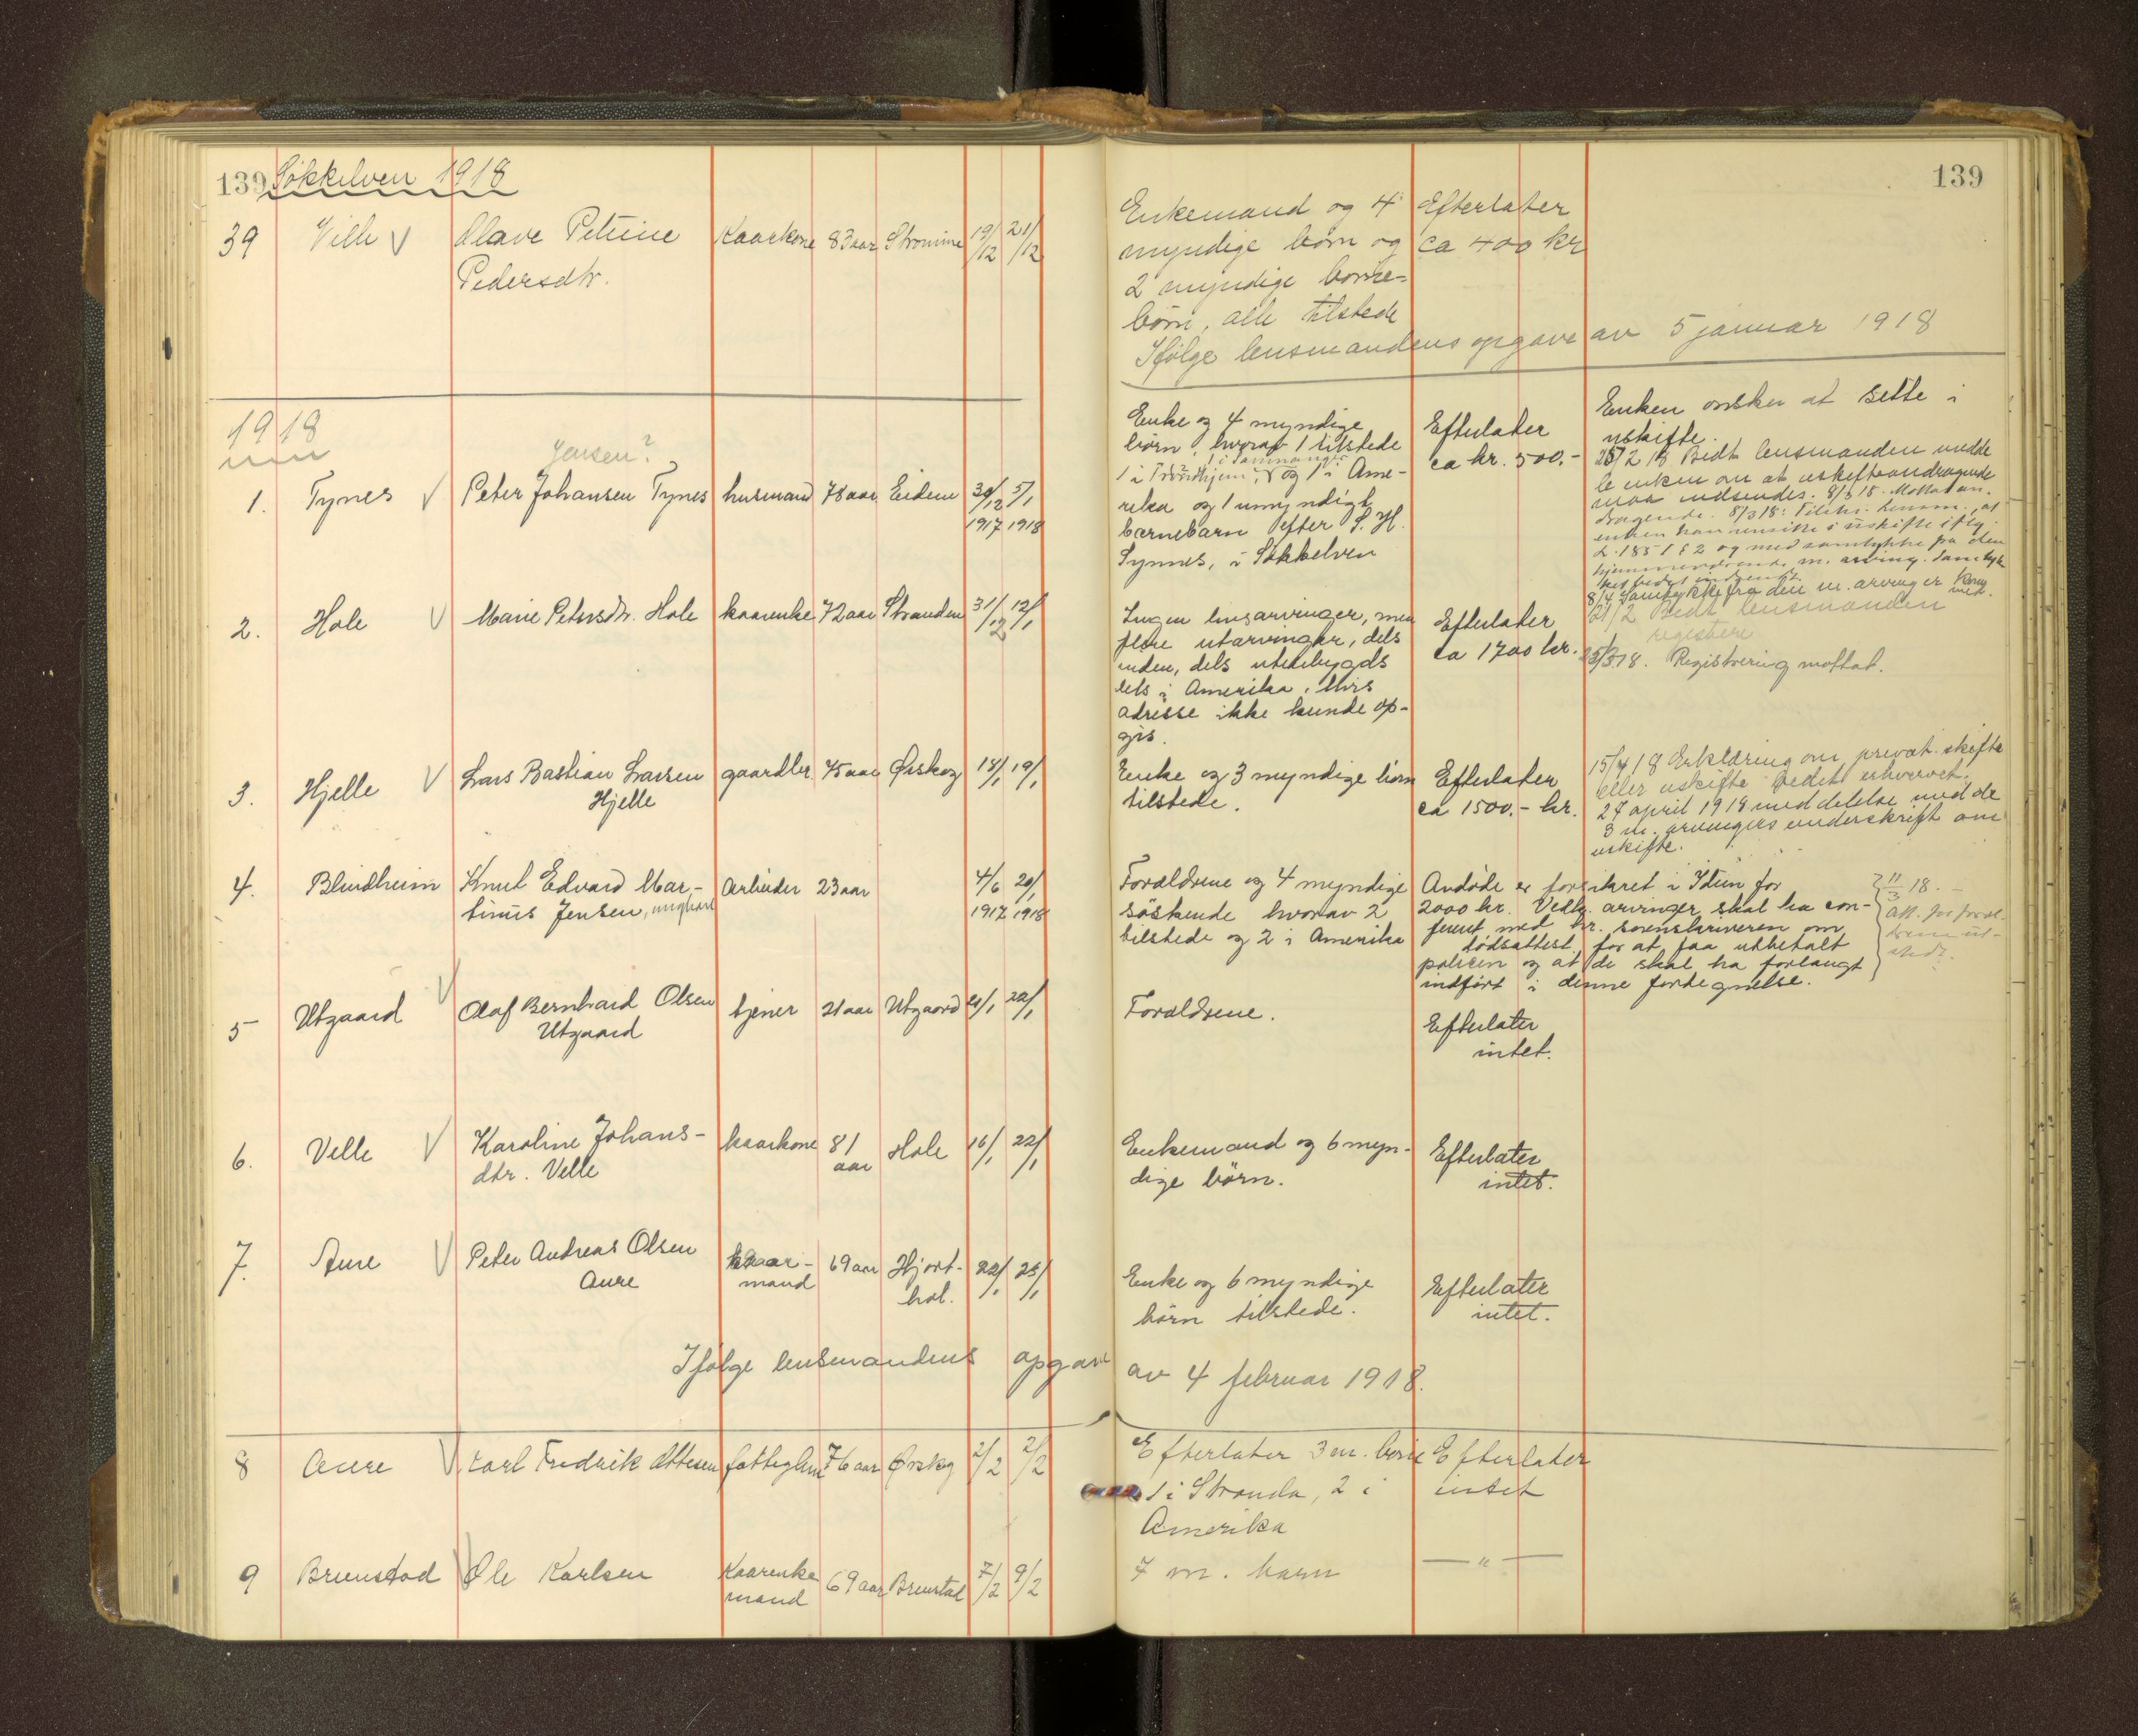 139 Søkkelven 1918
139
39 Velle V Olave Petrine Kaarkone 83 aar Strømme 19/12 21/12 Enkemand og 4 Efterlater
Pedersdtr. myndige børn og ca 400 kr
2 myndige borne-
børn, alle tilstede
Ifølge lensmandens opgave av 5 januar 1918
1918
Jensen?
1. Tynes V Peter Johansen Tynes husmand 78 aar Eidem 30/12 1917 5/1 1918
Enke og 4 myndige
børn, hvorav 1 tilstede
1 i Trondhjem, 1 i og 1 i Ame-
rika og 1 umyndigt
barnebarn efter S. H.
Synnes, i Søkkelven
Efterlater
ca kr. 500.-
Enken ønsker at sitte i
uskifte.
25/2 18 Bedt lensmanden medde
le enken om at uskifteandragende
maa indsendes. 8/3 18. Mottat an-
dragende. 8/3 18: Tilskr. lensm., at
enken kan sitte i uskifte iflg.
L. 1851 § 2 og med samtykke fra den
hjemmeværende m. arving. Samtyk
ket bedes indsendt.
8/4 Samtykke fra den m. arving er kom
met.
2. Hole V Marie Petersdtr. Hole kaarenke 72 aar Stranden 31/12 12/1
Ingen livsarvinger, men
flere utarvinger, dels
inden, dels utenbygds
dels i Amerika, hvis
adresse ikke kunde op-
gis.
Efterlater
ca 1700 kr.
21/2 Bedt lensmanden
registere
25/3 18. Registrering mottat.
3. Hjelle V Lars Bastian Larsen gaardbr. 45 aar Ørskog 18/1 19/1
Hjelle
Enke og 3 myndige børn
tilstede.
Efterlater
ca 1500.- kr.
15/4 18 Erklæring om privat skifte
eller uskifte bedt erhvervet.
27 april 1918 meddelelse med de
3 m. arvingers underskrift om
uskifte.
4. Blindheim Knut Edvard Mar- Arbeider 23 aar 4/6 1917 20/1 1918
tinus Jensen, ungkarl
Forældrene og 4 myndige
søskende hvorav 2
tilstede og 2 i Amerika
Avdøde er forsikret i Idun for
2000 kr. Vedk. arvinger skal ha con-
fereret med hr. sorenskriveren om
dødsattest, for at faa utbetalt
policen og at de skal ha forlangt
indført i denne fortegnelse.
11/3 18. -
Att. for foræl-
drene ut-
stedt.
5 Utgaard V Olaf Bernhard Olsen tjener 21 aar Utgaard 21/1 22/1
Utgaard
Forældrene.
Efterlater
intet.
6. Velle V Karoline Johans- kaarkone 81 aar Hole 16/1 22/1
dtr. Velle
Enkemand og 6 myn-
dige børn.
Efterlater
intet.
7. Aure V Peter Andreas Olsen kaar- 69 aar Hjort- 22/1 25/1
Aure mand hol.
Enke og 6 myndige
børn tilstede.
Efterlater
intet.
Ifølge lensmandens opgave av 4 februar 1918.
8 Aure V Karl Fredrik Ottesen fattiglem 76 aar Ørskog 2/2 2/2
Efterlater 3 m. børn
1 i Stranda, 2 i
Amerika
Efterlater
intet
9 Brunstad V Ole Karlsen Kaarenke 69 aar Brunstad 7/2 9/2
mand
7 m. barn
— " —